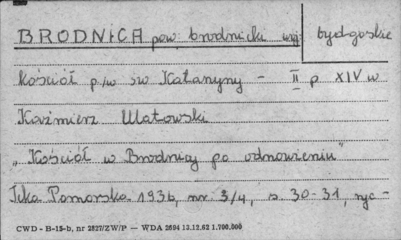 BRODNICA pow. brodnicki woj. bydgoskie
Kościół p/w św Katarzyny - II p XIV w
Kaźmierz Ulatowski
"Kościół w Brodnicy po odnowieniu"
Teka Pomorska 1936, nr 3/4, s. 30-31, ryc-
CWD - B-15-b, nr 2827/ZW/P — WDA 2694 13.12.62 1.700.000